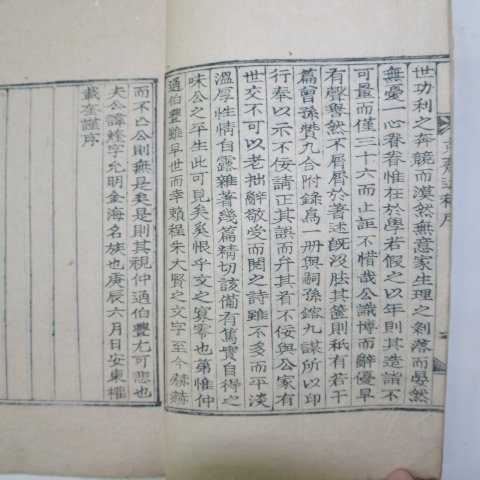 世功利之奔競而漠然無意家生理之剝落而嗒然
無憂一心眷眷惟在於學若假之以年則其造諸不
可量而僅三十六而上詎不惜哉公識博而辭優早
有聲譽然不屑屑於著述旣沒胠其篋則秪有若干
篇曾孫贊九合附錄爲一冊與嗣孫鎔九謀所以印
行奉以示不佞請正其誤而弁其首不佞與公家有
世交不可以老拙辭敬受而閱之詩雖不多而平淡
溫厚性情自露雜著幾篇精切該備有篤實自得之
味公之平生此可見矣奚恨乎文之寂寥也第惟仲
過伯豐雖早世而幸賴程朱大賢之文字至今赫赫
而不亡公則無是矣是則其視仲過伯豐尤可悲也
夫公諱 字允明金海名族也庚辰六月日安東權
載奎謹序